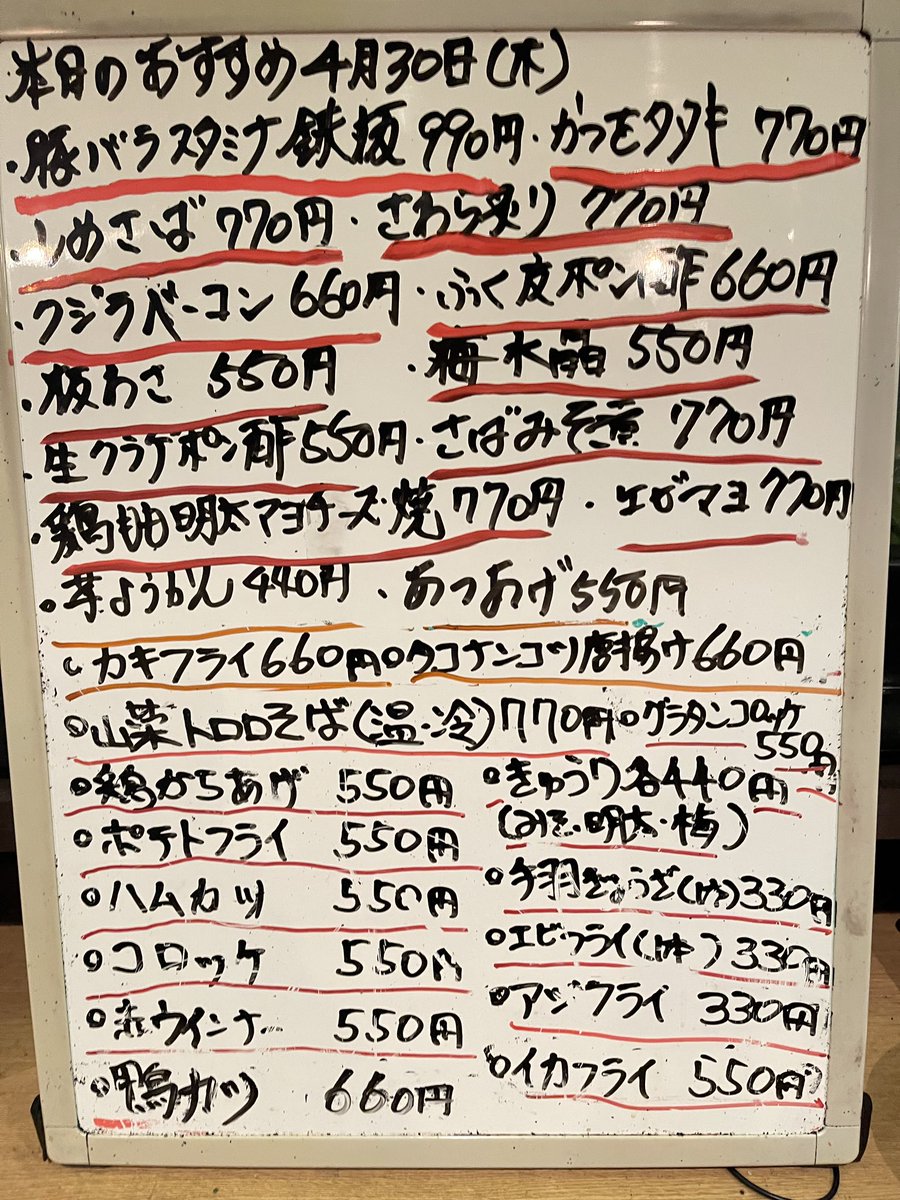 本日のおすすめ4月30日(木)
・豚バラスタミナ鉄板 990円・かつをタタキ 770円
・しめさば 770円・さわら炙り 770円
・クジラベーコン 660円・ふぐ皮ポン酢 660円
・板わさ 550円・梅水晶 550円
・生クラゲポン酢 550円・さばみそ煮 770円
・鶏柚明太マヨチーズ焼 770円・エビマヨ 770円
・芋ようかん 440円・あつあげ 550円
○カキフライ 660円○タコナンコツ唐揚げ 660円
○山菜トロロそば(温・冷) 770円○グラタンコロッケ 550円
○鶏からあげ 550円○きゅうり各440円
(みそ・明太・梅)
○ポテトフライ 550円
○ハムカツ 550円○手羽ぎょうざ 330円
○コロッケ 550円○エビフライ(1本) 330円
○赤ウインナー 550円○アジフライ 330円
○鴨カツ 660円○イカフライ 550円